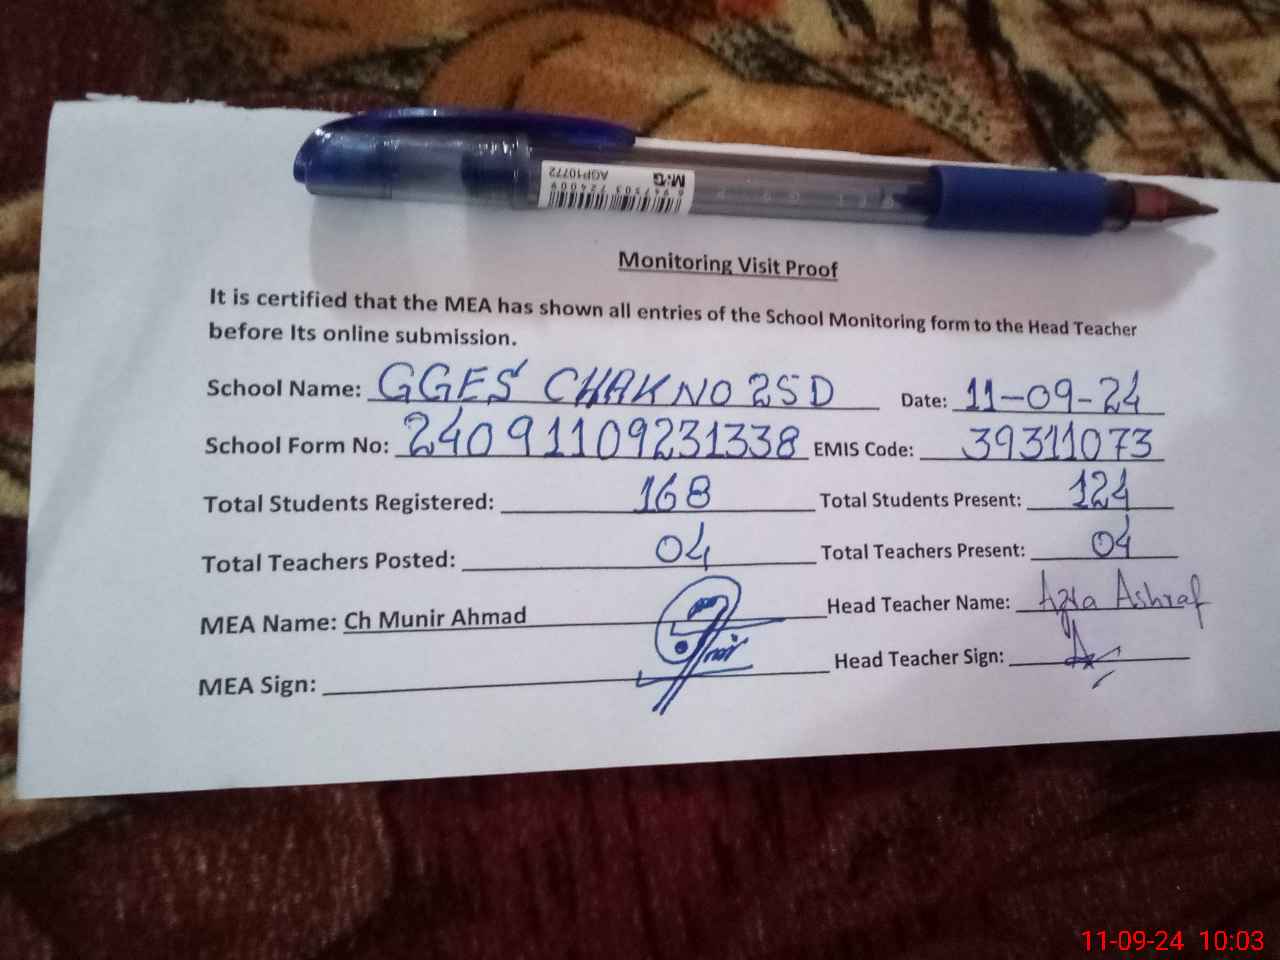 M&G
AGP10772
6 947503 724009
Monitoring Visit Proof
It is certified that the MEA has shown all entries of the School Monitoring form to the Head Teacher
before Its online submission.
School Name: GGES CHAK NO 2SD Date: 11-09-24
School Form No: 24091109231338 EMIS Code: 39311073
Total Students Registered: 168 Total Students Present: 124
Total Teachers Posted: 04 Total Teachers Present: 04
MEA Name: Ch Munir Ahmad Head Teacher Name: Azra Ashraf
MEA Sign: Head Teacher Sign:
11-09-24 10:03